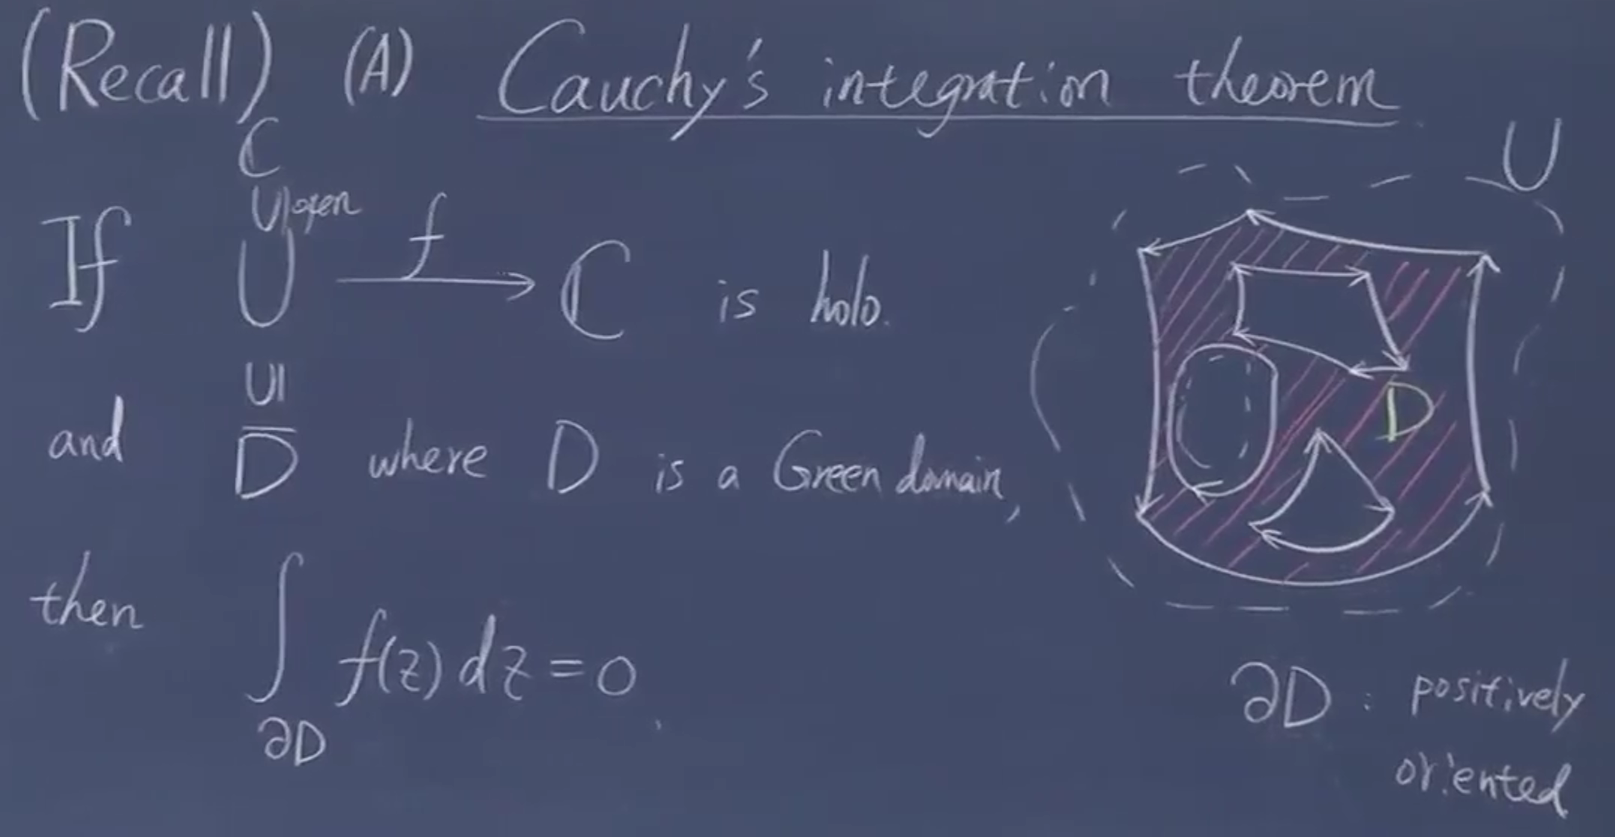 (Recall) (A) Cauchy's integration theorem
ℂ
U
∪| open
If U —f→ ℂ is holo.
∪|
and D̅ where D is a Green domain,
D
then ∫_{∂D} f(z) dz = 0.
∂D : positively
oriented